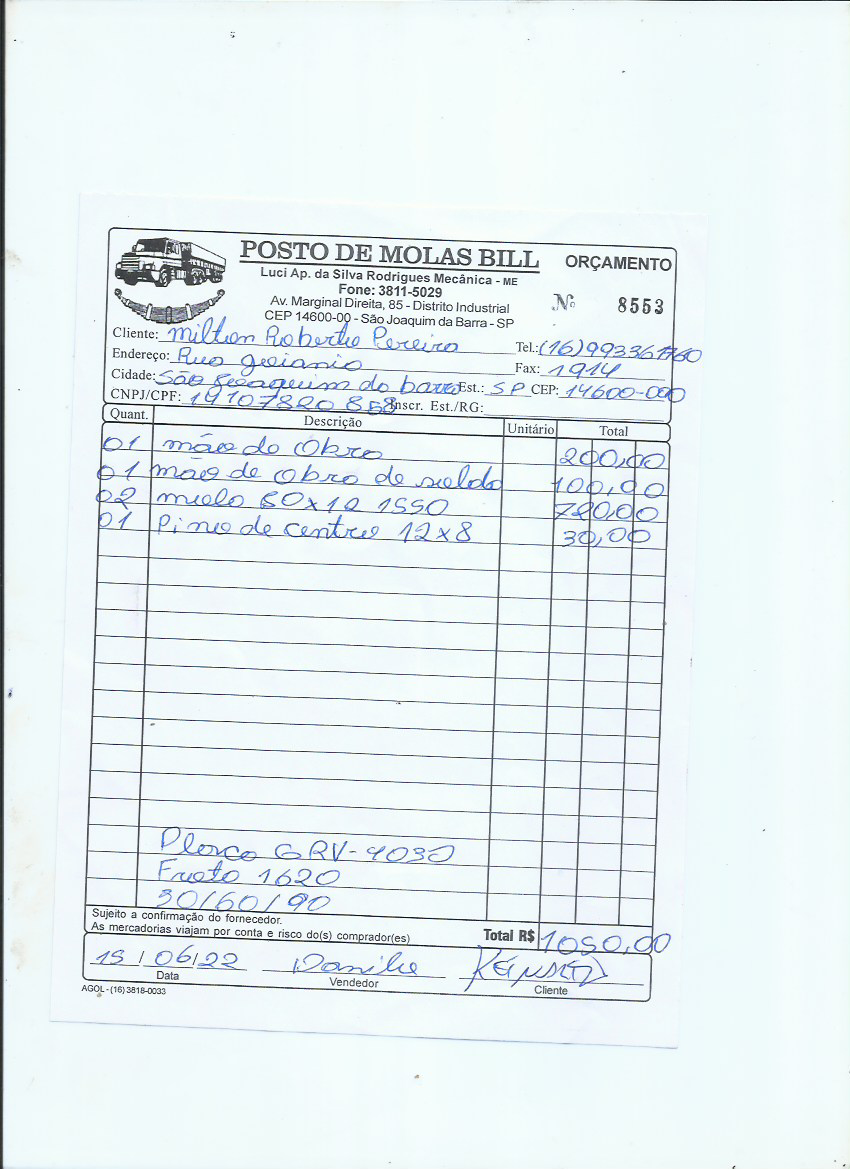 POSTO DE MOLAS BILL
ORÇAMENTO
Luci Ap. da Silva Rodrigues Mecânica - ME
Fone: 3811-5029
Av. Marginal Direita, 85 - Distrito Industrial
CEP 14600-00 - São Joaquim da Barra - SP
Nº 8553
Cliente: Milton Roberto Pereira Tel.: (16)993361760
Endereço: Rua goiania Fax: 1914
Cidade: São Joaquim da barra Est.: SP CEP: 14600-000
CNPJ/CPF: 19107820 858 Inscr. Est./RG:
Quant. Descrição Unitário Total
01 mão de Obra 200,00
01 mão de Obra de solda 100,00
02 mola 80x12 1550 720,00
01 Pino de centro 12x8 30,00
Placa GRV-4030
Frota 1620
30/60/90
Sujeito a confirmação do fornecedor.
As mercadorias viajam por conta e risco do(s) comprador(es)
Total R$ 1050,00
15/06/22 Danilo
Data Vendedor Cliente
AGOL - (16) 3818-0033